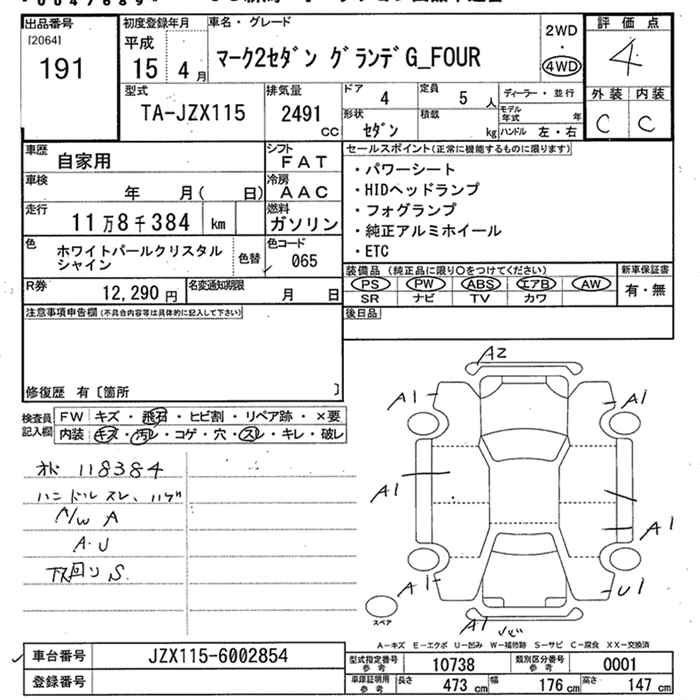 出品番号
[2064]
191
初度登録年月
平成
15年 4月
車名・グレード
マーク2セダン グランデG_FOUR
2WD
・
4WD
評価点
4
外装 内装
C C
型式
TA-JZX115
排気量
2491 cc
ドア 4
定員 5人
形状 セダン
積載 kg
ディーラー・並行
モデル年式 年
ハンドル 左・右
車歴 自家用
シフト FAT
車検 年 月( 日)
冷房 AAC
走行 11万8千384 km
燃料 ガソリン
色 ホワイトパールクリスタル
シャイン
色替
色コード 065
R券 12,290円
名変通知期限 月 日
セールスポイント(正常に機能するものに限ります)
・パワーシート
・HIDヘッドランプ
・フォグランプ
・純正アルミホイール
・ETC
装備品(純正品に限り○をつけてください)
PS PW ABS エアB AW
SR ナビ TV カワ
新車保証書
有・無
後日品
注意事項申告欄(不具合内容等は具体的に記入して下さい)
修復歴 有〔箇所 〕
検査員記入欄
FW キズ・飛石・ヒビ割・リペア跡・×要
内装 キズ・汚レ・コゲ・穴・スレ・キレ・破レ
オド 118384
ハンドルスレ、ハゲ
A/W A
A・U
下回りS
A2
A1 A1
A1 A1
A1 U1
A1
スペア
A-キズ E-エクボ U-凹み W-補修跡 S-サビ C-腐食 XX-交換済
車台番号 JZX115-6002854
登録番号
型式指定番号 参考 10738
類別区分番号 参考 0001
車庫証明用 参考 長さ 473cm 幅 176cm 高さ 147cm